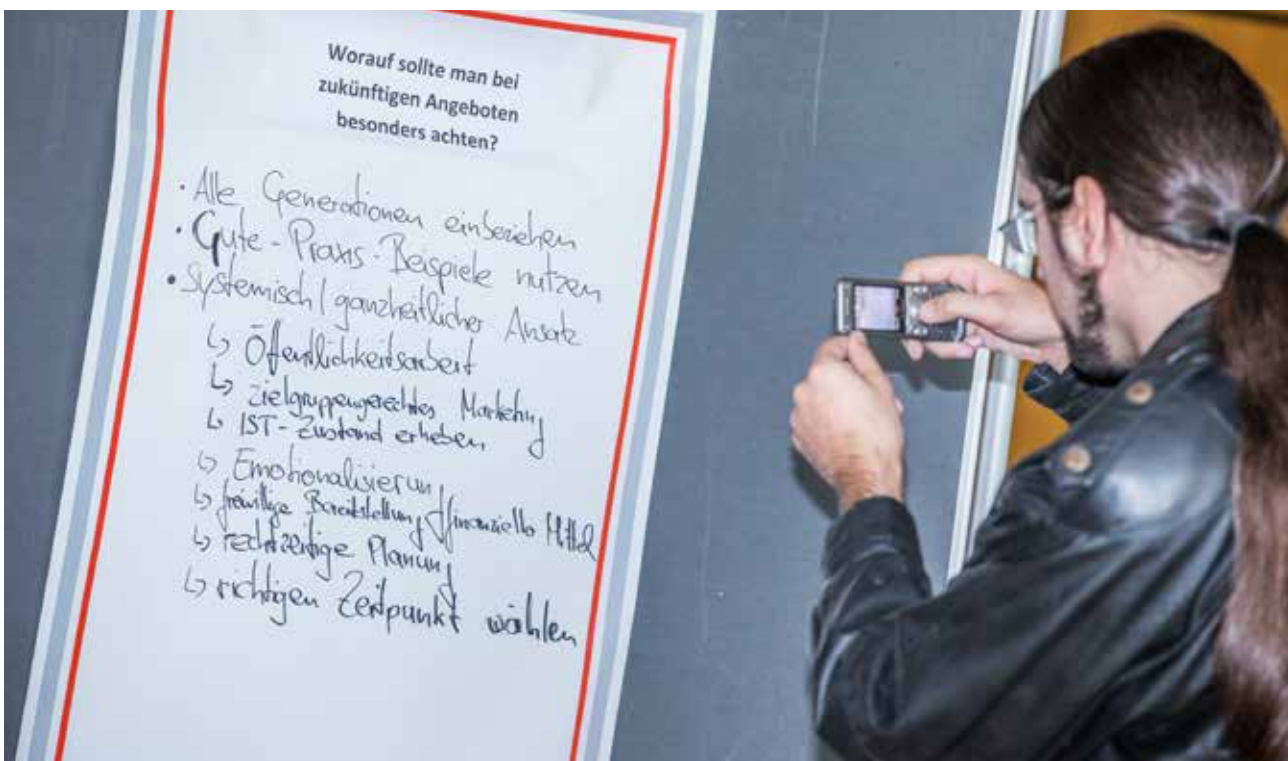 Worauf sollte man bei
zukünftigen Angeboten
besonders achten?
· Alle Generationen einbeziehen
· Gute-Praxis-Beispiele nutzen
· Systemisch/ganzheitlicher Ansatz
↳ Öffentlichkeitsarbeit
↳ zielgruppengerechtes Marketing
↳ IST-Zustand erheben
↳ Emotionalisierung
↳ Bereitstellung finanzielle Mittel
↳ rechtzeitige Planung
↳ richtigen Zeitpunkt wählen